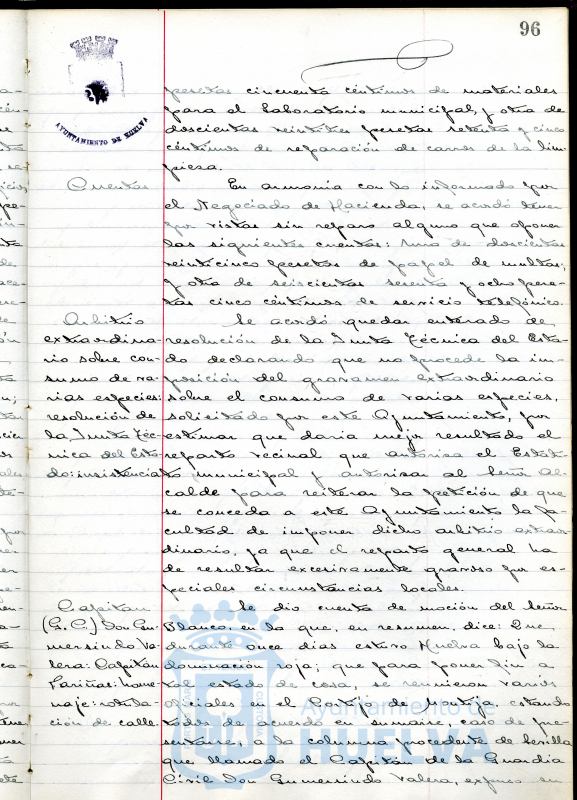 96
AYUNTAMIENTO DE HUELVA
pesetas cincuenta céntimos de materiales
para el Laboratorio municipal, y otra de
doscientas veintitres pesetas setenta y cinco
céntimos de reparación de carros de la lim-
pieza.
Cuentas
En armonía con lo informado por
el Negociado de Hacienda, se acordó tener
por vistas sin reparo alguno que oponer
las siguientes cuentas: Una de doscientas
veinticinco pesetas de papel de multas;
y otra de seiscientas sesenta y ocho pese-
tas cinco céntimos de servicio telefónico.
Arbitrio
extraordina-
rio sobre con-
sumo de va-
rias especies:
resolución de
la Junta Téc-
nica del Esta-
do: insistencia
Se acordó quedar enterado de
resolución de la Junta Técnica del Esta-
do declarando que no procede la im-
posición del gravamen extraordinario
sobre el consumo de varias especies,
solicitado por este Ayuntamiento, por
estimar que daria mejor resultado el
reparto vecinal que autorisa el Estatu-
to municipal y autorisar al Señor Al-
calde para reiterar la petición de que
se conceda a este Ayuntamiento la fa-
cultad de imponer dicho arbitrio extraor-
dinario, ya que el reparto general ha
de resultar excesivamente gravoso por es-
peciales circunstancias locales.
Capitan
(G. C.) Don Gu-
mersindo Va-
lera: Capitan
Variñas: home-
naje: rotula-
ción de calle.
Se dio cuenta de moción del Señor
Blanco, en la que, en resumen, dice: Que
durante once dias estuvo Huelva bajo la
dominación roja; que para poner fin a
tal estado de cosa, se reunieron varios
oficiales en el Cortijo de Montija estando
todos de acuerdo en sumarse, caso de pre-
sentarse, a la columna procedente de Sevilla
que llamado el Capitán de la Guardia
Civil Don Gumersindo Valera, expuso en
Ayuntamiento de
HUELVA